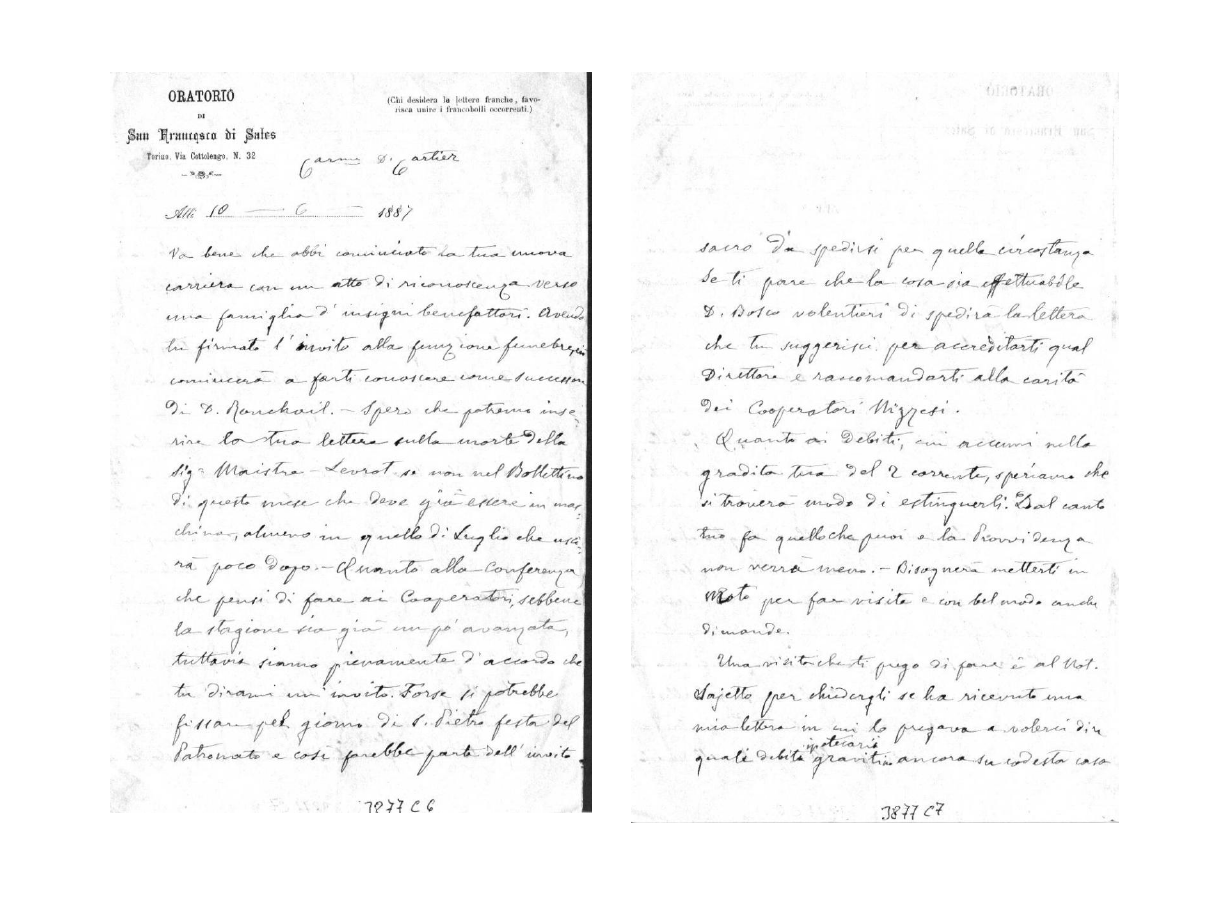 ORATORIO
DI
San Francesco di Sales
Torino, Via Cottolengo, N. 32
(Chi desidera la lettere franche, favo-
risca unire i francobolli occorrenti.)
D. Cartier
Alli 10 6 1887
Va bene che abbi cominciato la tua nuova
carriera con un atto di riconoscenza verso
una famiglia d'insigni benefattori. Avendo
tu firmato l'invito alla funzione funebre
comincerà a farti conoscere come successore
di D. Ronchail. - Spero che potremo inse-
rire la tua lettera sulla morte della
Sigª Maistre - Levrot se non nel Bollettino
di questo mese che deve già essere in mac-
china, almeno in quello di Luglio che usci-
rà poco dopo. - Quanto alla Conferenza
che pensi di fare ai Cooperatori, sebbene
la stagione sia già un po' avanzata,
tuttavia siamo pienamente d'accordo che
tu dirami un invito. Forse si potrebbe
fissare pel giorno di S. Pietro festa del
Patronato e così farebbe parte dell'invito
3877 C6
sacro da spedirsi per quella circostanza
Se ti pare che la cosa sia effettuabile
D. Bosco volentieri di spedirà la lettera
che tu suggerisci per accreditarti qual
Direttore e raccomandarti alla carità
dei Cooperatori Nizzesi.
Quanto ai Debiti, cui accenni nella
gradita tua del 2 corrente, speriamo che
si troverà modo di estinguerli. Dal canto
tuo fa quello che puoi e la Provvidenza
non verrà meno. - Bisognerà metterti in
moto per far visite e con bel modo anche
dimande.
Una visita che ti prego di fare è al Not.
Sajetto per chiedergli se ha ricevuto una
mia lettera in cui lo pregava a volerci dire
quale debito ipotecario graviti ancora su codesta casa
3877 C7